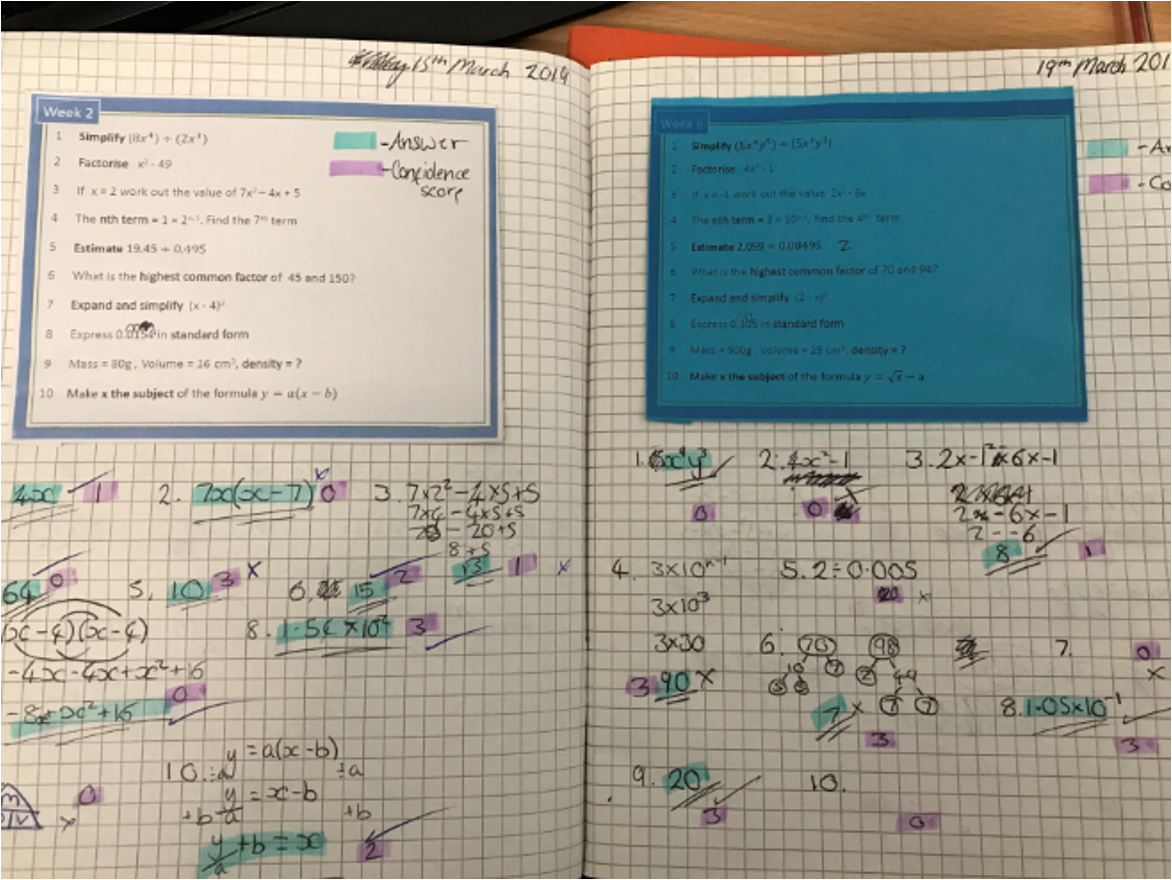 15th March 2019
Week 2
1 Simplify (8x⁴) ÷ (2x³)
2 Factorise x² - 49
3 If x = 2 work out the value of 7x² – 4x + 5
4 The nth term = 1 × 2ⁿ⁻¹. Find the 7ᵗʰ term
5 Estimate 19.45 ÷ 0.495
6 What is the highest common factor of 45 and 150?
7 Expand and simplify (x - 4)²
8 Express 0.0154 in standard form
9 Mass = 80g, Volume = 16 cm³, density = ?
10 Make x the subject of the formula y = a(x − b)
-Answer
-Confidence
score
4x 1
2. 7x(x-7) 0
3. 7×2²-4×5+5
7×4-4×5+5
- 20+5
8+5
13 1
64 0
5. 10 3
6. 15 2
(x-4)(x-4)
-4x-4x+x²+16
-8x+x²+16 0
8. 1.54×10² 3
0
10. ÷a y = a(x-b) ÷a
+b y/a = x-b +b
y/a +b = x 2
19th March 201
Week 6
1 Simplify (5x⁴y⁵) ÷ (5x³y²)
2 Factorise 4x² - 1
3 If x = -1 work out the value 2x² - 6x
4 The nth term = 3 × 10ⁿ⁻¹. Find the 4ᵗʰ term
5 Estimate 2.059 ÷ 0.00495 2
6 What is the highest common factor of 70 and 98?
7 Expand and simplify (2 - x)²
8 Express 0.105 in standard form
9 Mass = 500g, Volume = 25 cm³, density = ?
10 Make x the subject of the formula y = √x − a
-An
-Co
1. 0
2. 4x²-1 0
3. 2×-1²-6×-1
2 -6×-1
2--6
8 1
4. 3×10ⁿ⁻¹
3×10³
3×30
3 90
5. 2÷0.005
6. 70 98
10 7 2 49
7 7
7
3
7. 0
8. 1.05×10⁻¹
3
9. 20
3
10.
0